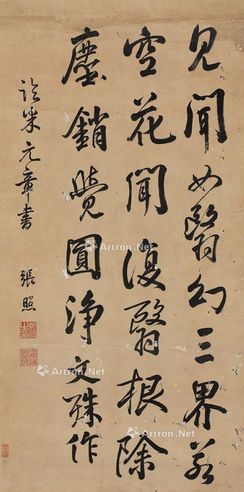 見聞如翳幻三界若
空花聞復翳根除
塵銷覺圓淨文殊作
臨米元章書
張照
Artron.Net
Artron.Net
Artron.Net
Artron.Net
Artron.Net